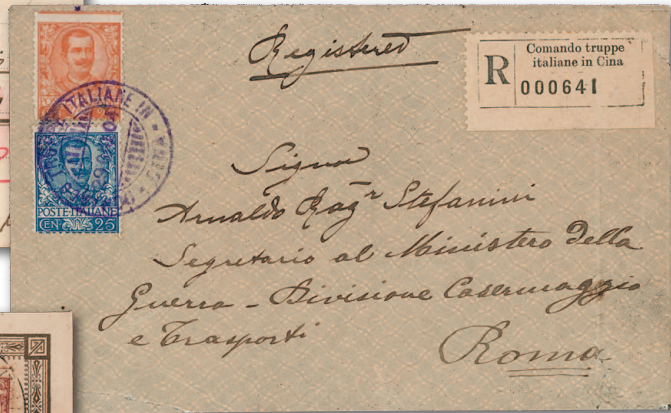 Registered
R
Comando truppe
italiane in Cina
000641
ITALIANE IN
CINA
POSTE ITALIANE
CEN 25
Signor
Arnaldo Rag.r Stefanini
Segretario al Ministero della
Guerra - Divisione Casermaggio
e Trasporti
Roma